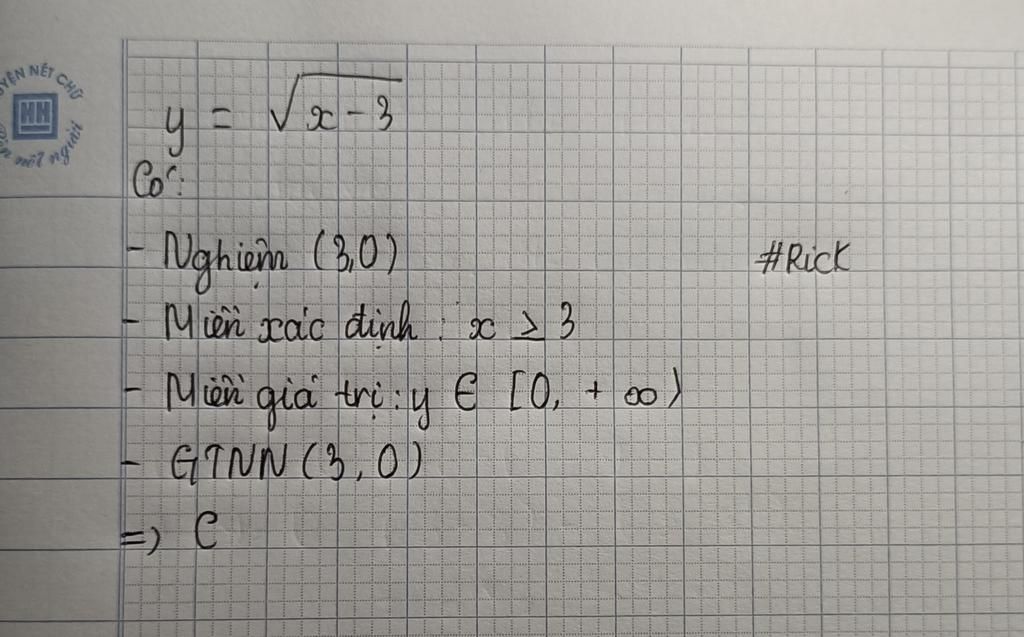 UYỆN NÉT CHỮ
HH
nét người
y = √(x - 3)
Có:
- Nghiệm (3,0)
#Rick
- Miền xác định : x ≥ 3
- Miền giá trị : y ∈ [0, + ∞)
- GTNN (3, 0)
=> C